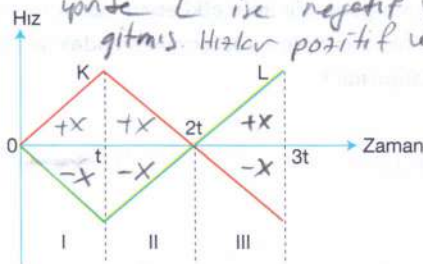 yönde L ise negatif
gitmiş. Hızlar pozitif
Hız
K
L
+x
+x
+x
0
t
2t
3t
Zaman
-x
-x
-x
I
II
III